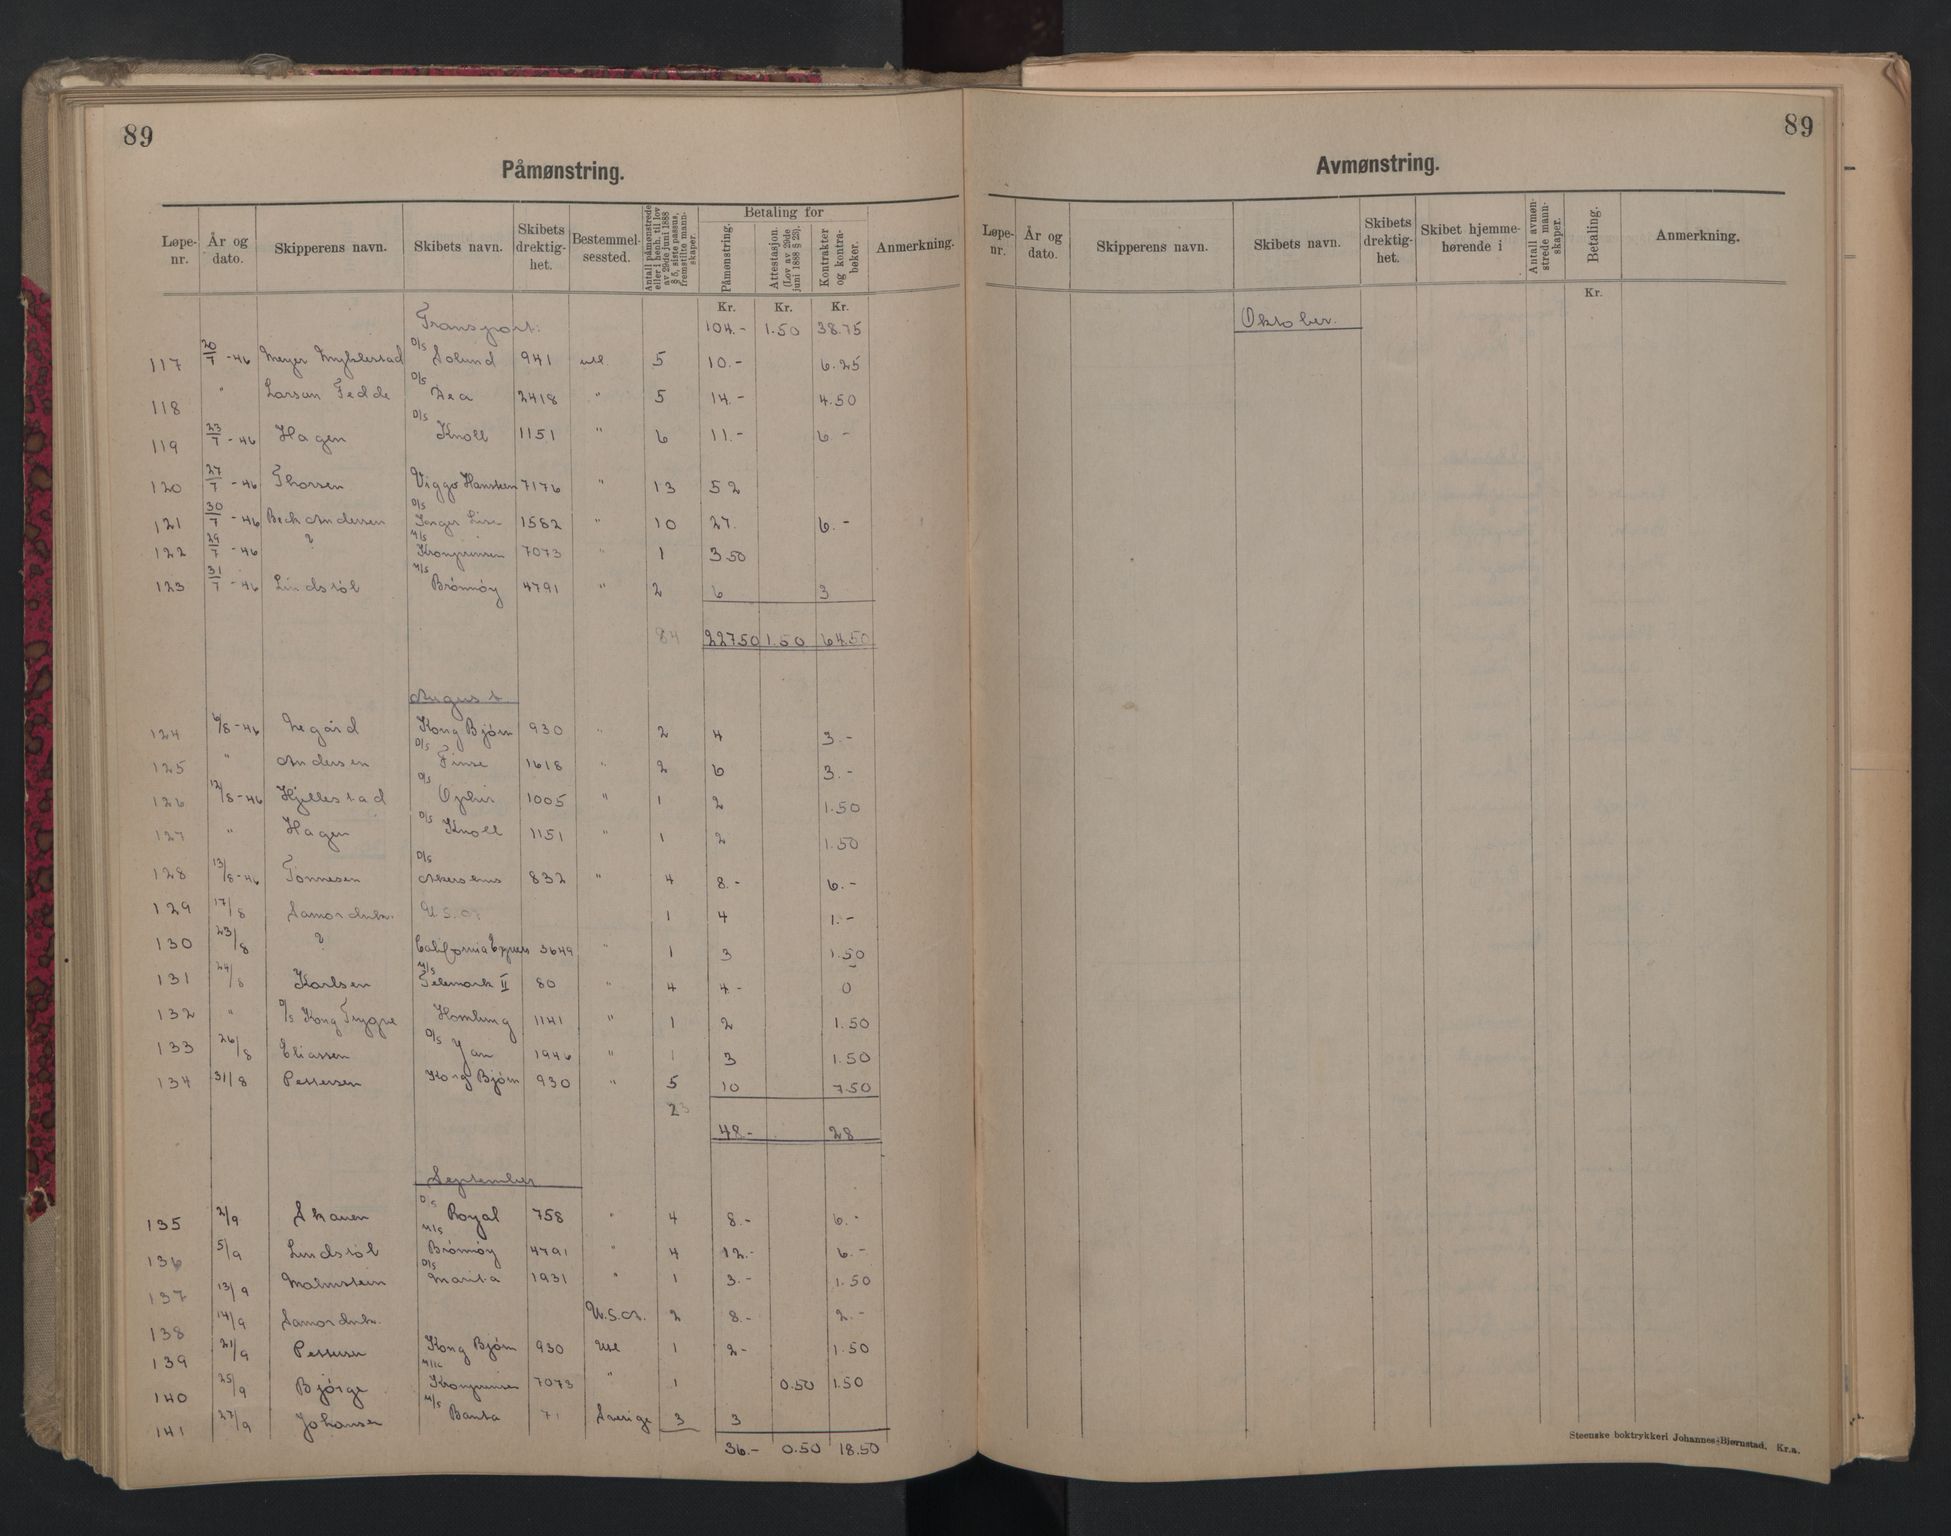 89
Påmønstring.
Løpe-nr. År og dato. Skipperens navn. Skibets navn. Skibets drektig-het. Bestemmel-sessted. Antall påmønstrede eller i henh. til lov av 29de juni 1888 § 5, siste passus, fremstilte mann-skaper. Betaling for Påmønstring. Attestasjon. (Lov av 29de juni 1888 § 23). Kontrakter og kontra-bøker. Anmerkning.
Kr. Kr. Kr.
Transport: 104.- 1.50 38.75
117 20/7 -46 Meyer Myklestad D/S Solund 941 utl. 5 10.- 6.25
118 " Larsen Fedde D/S Zea 2418 " 5 14.- 4.50
119 23/7 -46 Hagen D/S Knoll 1151 " 6 11.- 6 -
120 27/7 -46 Thorsen Viggo Hansteen 7176 " 13 52
121 30/7 -46 Beck Andersen D/S Inger Lise 1582 " 10 27. 6.-
122 29/7 -46 ? M/S Kronprinsen 7073 " 1 3.50
123 31/7 -46 Lindstøl M/S Brønnøy 4791 " 2 6 3
84 22750 1.50 64.50
August
124 6/8 -46 Negård Kong Bjørn 930 " 2 4 3.-
125 " Andersen D/S Finse 1618 " 2 6 3.-
126 12/8 -46 Hjellestad D/S Ophir 1005 " 1 2 1.50
127 " Hagen D/S Knoll 1151 " 1 2 1.50
128 13/8 -46 Tønnesen D/S Akershus 832 " 4 8.- 6.-
129 17/8 Samordnbr. U.S.A. 1 4 1.-
130 23/8 ? California Express 3649 " 1 3 1.50
131 24/8 Karlsen M/S Telemark II 80 " 4 4.- 0
132 " D/S Kong Trygve Homlung 1141 " 1 2 1.50
133 26/8 Eliassen D/S Jan 1946 " 1 3 1.50
134 31/8 Pettersen Kong Bjørn 930 " 5 10 7.50
23
48.- 28
September
135 2/9 Skauen D/S Royal 758 " 4 8.- 6.-
136 5/9 Lindstøl M/S Brønnøy 4791 " 4 12.- 6.-
137 13/9 Malmstein D/S Marita 1931 " 1 3.- 1.50
138 14/9 Samordnbr. U.S.A. 2 8.- 2.-
139 21/9 Pettersen Kong Bjørn 930 Utl 1 2- 1.50
140 25/9 Bjørge Kronprinsen 7073 " 1 0.50 1.50
141 27/9 Johansen M/S Banta 71 Sverige 3 3
36.- 0.50 18.50
89
Avmønstring.
Løpe-nr. År og dato. Skipperens navn. Skibets navn. Skibets drektig-het. Skibet hjemme-hørende i Antall avmøn-strede mann-skaper. Betaling. Anmerkning.
Kr.
Oktober.
Steenske boktrykkeri Johannes Bjørnstad, Kr.a.